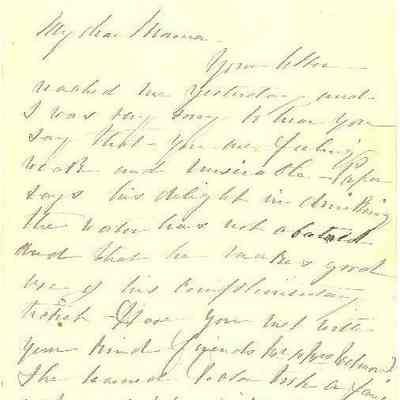 My dear Mama -
Your letter
reached me yesterday and
I was very sorry to hear you
say that you are feeling
weak and miserable - Papa
says his delight in drinking
the water has not abated
and that he makes good
use of his complimentary
ticket - Have you met with
your kind friends
the learned Doctor